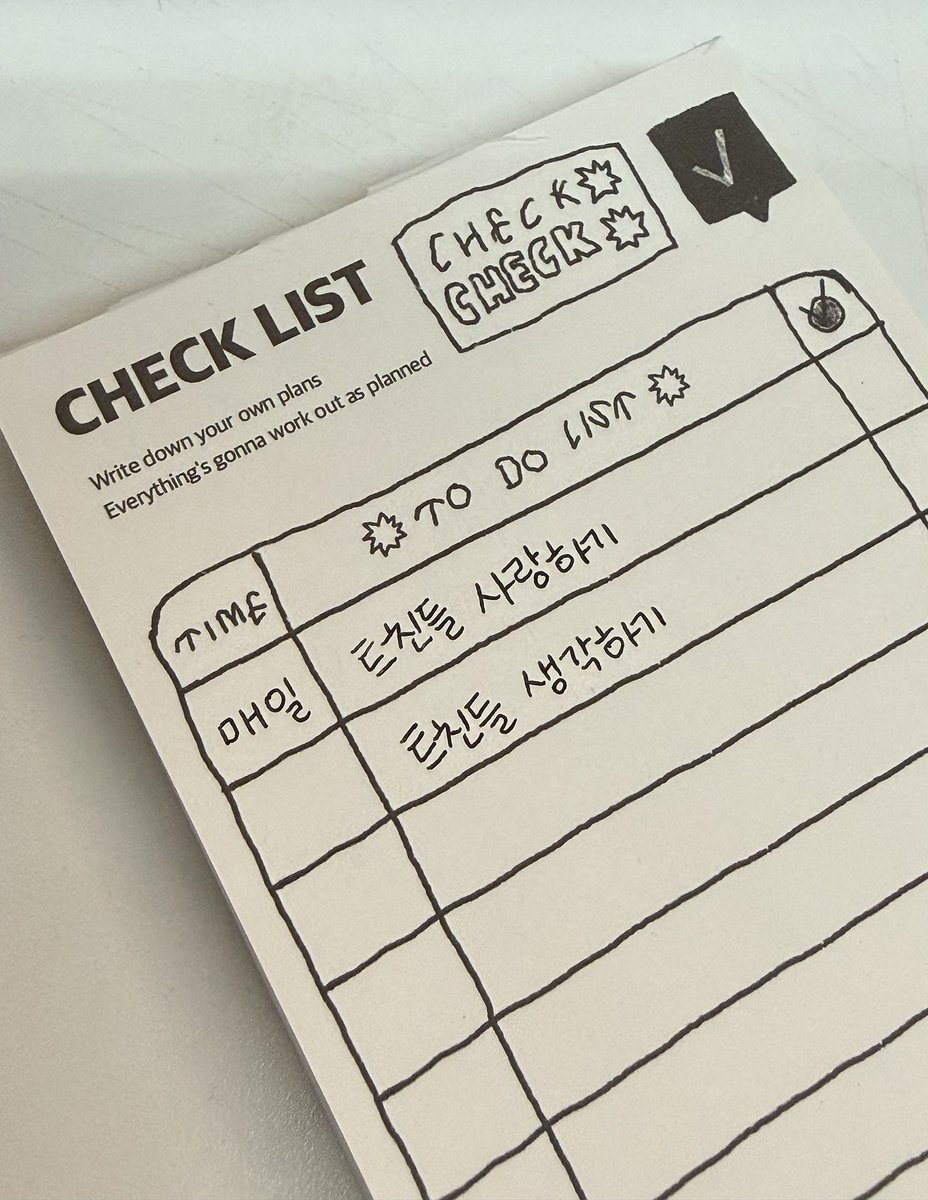 CHECK
CHECK
CHECK LIST
Write down your own plans
Everything's gonna work out as planned
TIME
TO DO LIST
매일
트친들 사랑하기
트친들 생각하기